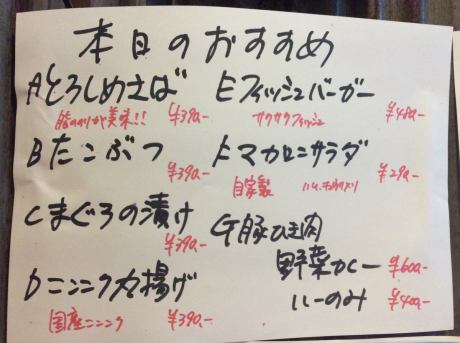 本日のおすすめ
Aとろしめさば
脂のりが美味!!
¥390-
Bたこぶつ
¥390-
Cまぐろの漬け
¥390-
Dニンニク丸揚げ
国産ニンニク
¥390-
Eフィッシュバーガー
サクサクフィッシュ
¥480-
Fマカロニサラダ
自家製
¥290-
G豚ひき肉
野菜カレー ¥600-
ルーのみ ¥400-